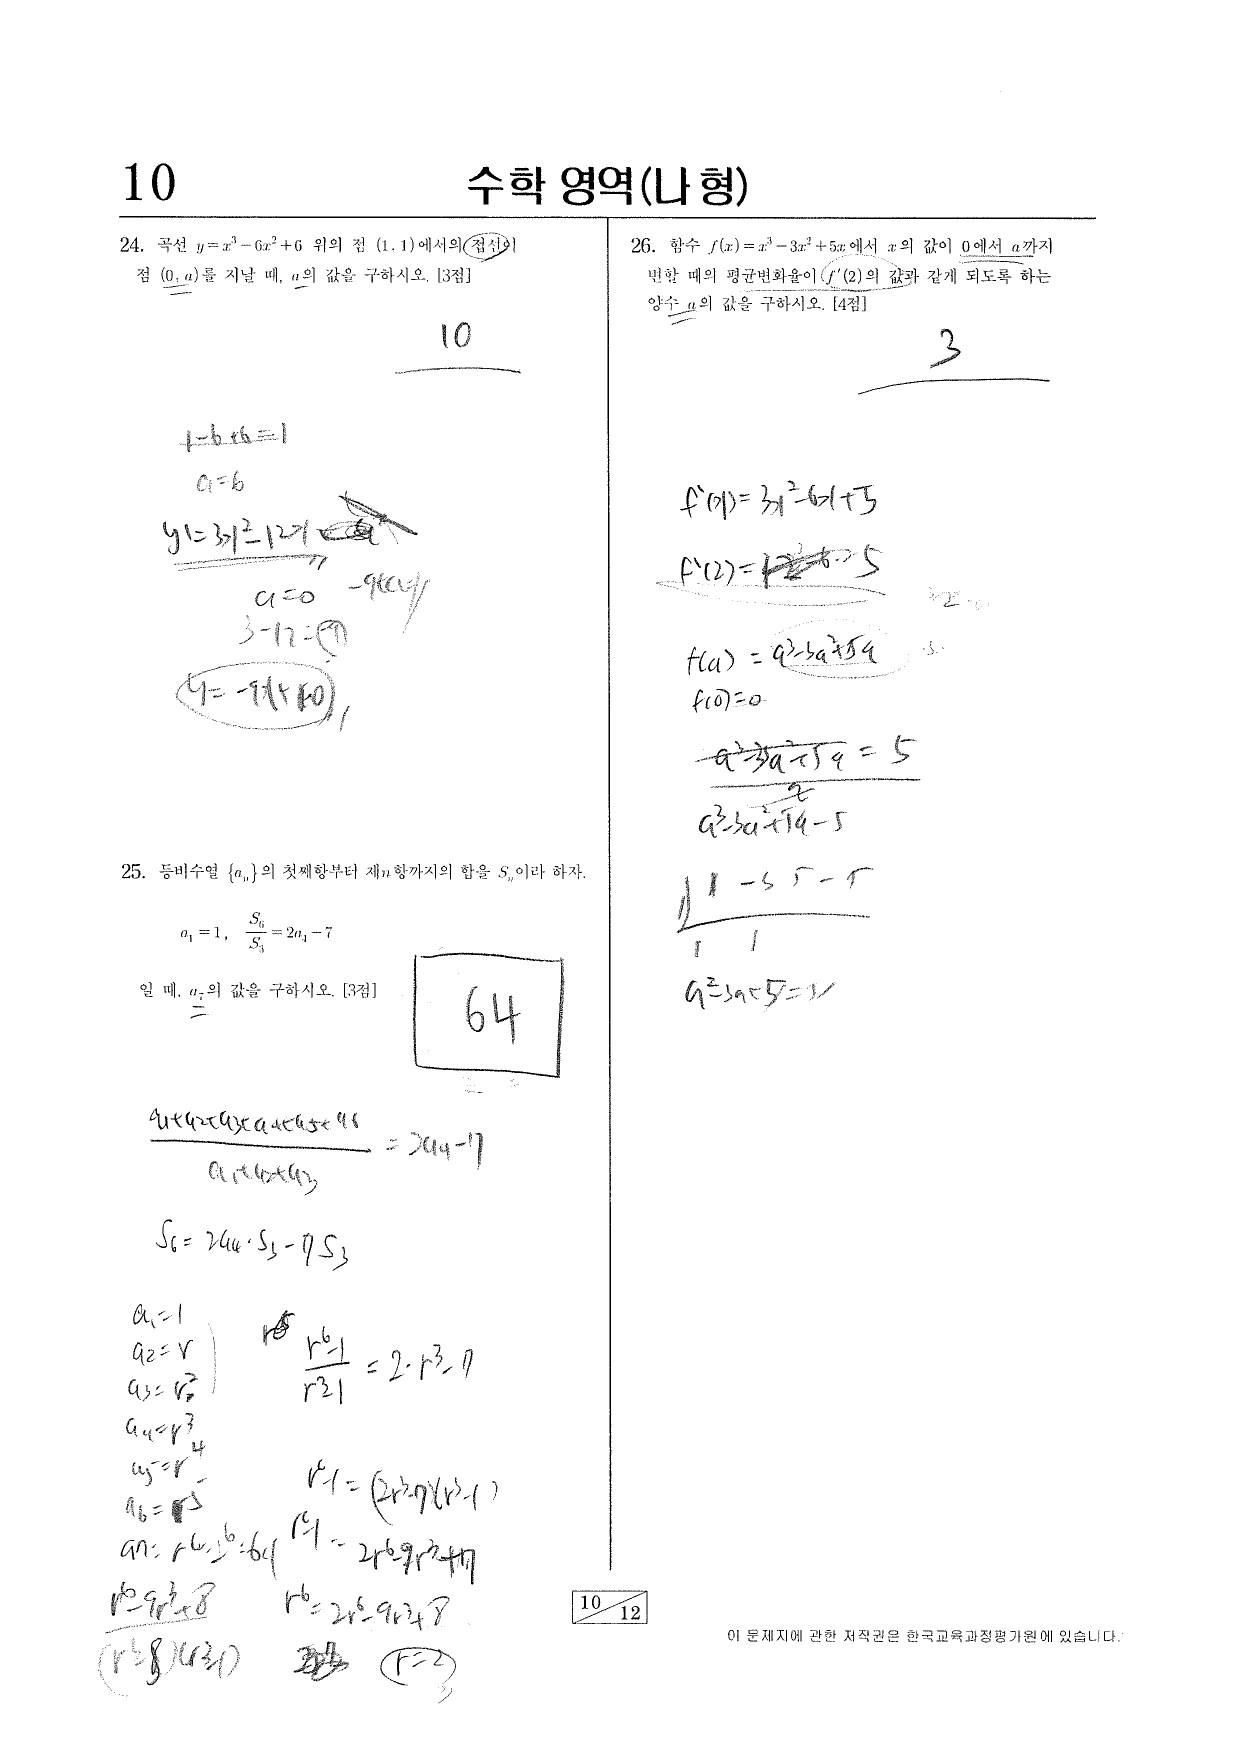 10
수학 영역(나 형)
24. 곡선 y=x³-6x²+6 위의 점 (1, 1)에서의 접선이
점 (0, a)를 지날 때, a의 값을 구하시오. [3점]
10
1-6+6=1
a=6
y'=3x²-12x
a=0
3-12=
y=-9x+10
25. 등비수열 {aₙ}의 첫째항부터 제n항까지의 합을 Sₙ이라 하자.
a₁=1, S₆/S₃=2a₄-7
일 때, a₇의 값을 구하시오. [3점]
64
a₁+a₂+a₃+a₄+a₅+a₆
= 2a₄-7
a₁+a₂+a₃
S₆=2a₄·S₃-7S₃
a₁=1
a₂=r
a₃=r²
a₄=r³
a₅=r⁴
a₆=r⁵
a₇=r⁶=2⁶=64
r⁶-9r³+8
(r³-8)(r³-1)
r⁶-1
= 2·r³-7
r³-1
r⁶-1=(2r³-7)(r³-1)
r⁶-1=2r⁶-9r³+7
r⁶=2r⁶-9r³+8
r=2
26. 함수 f(x)=x³-3x²+5x에서 x의 값이 0에서 a까지
변할 때의 평균변화율이 f'(2)의 값과 같게 되도록 하는
양수 a의 값을 구하시오. [4점]
3
f'(x)=3x²-6x+5
f'(2)=5
f(a)=a³-3a²+5a
f(0)=0
a³-3a²+5a=5
a
a³-3a²+5a-5
1 -3 5 -5
1 1
a²-3a+5=
10
12
이 문제지에 관한 저작권은 한국교육과정평가원에 있습니다.